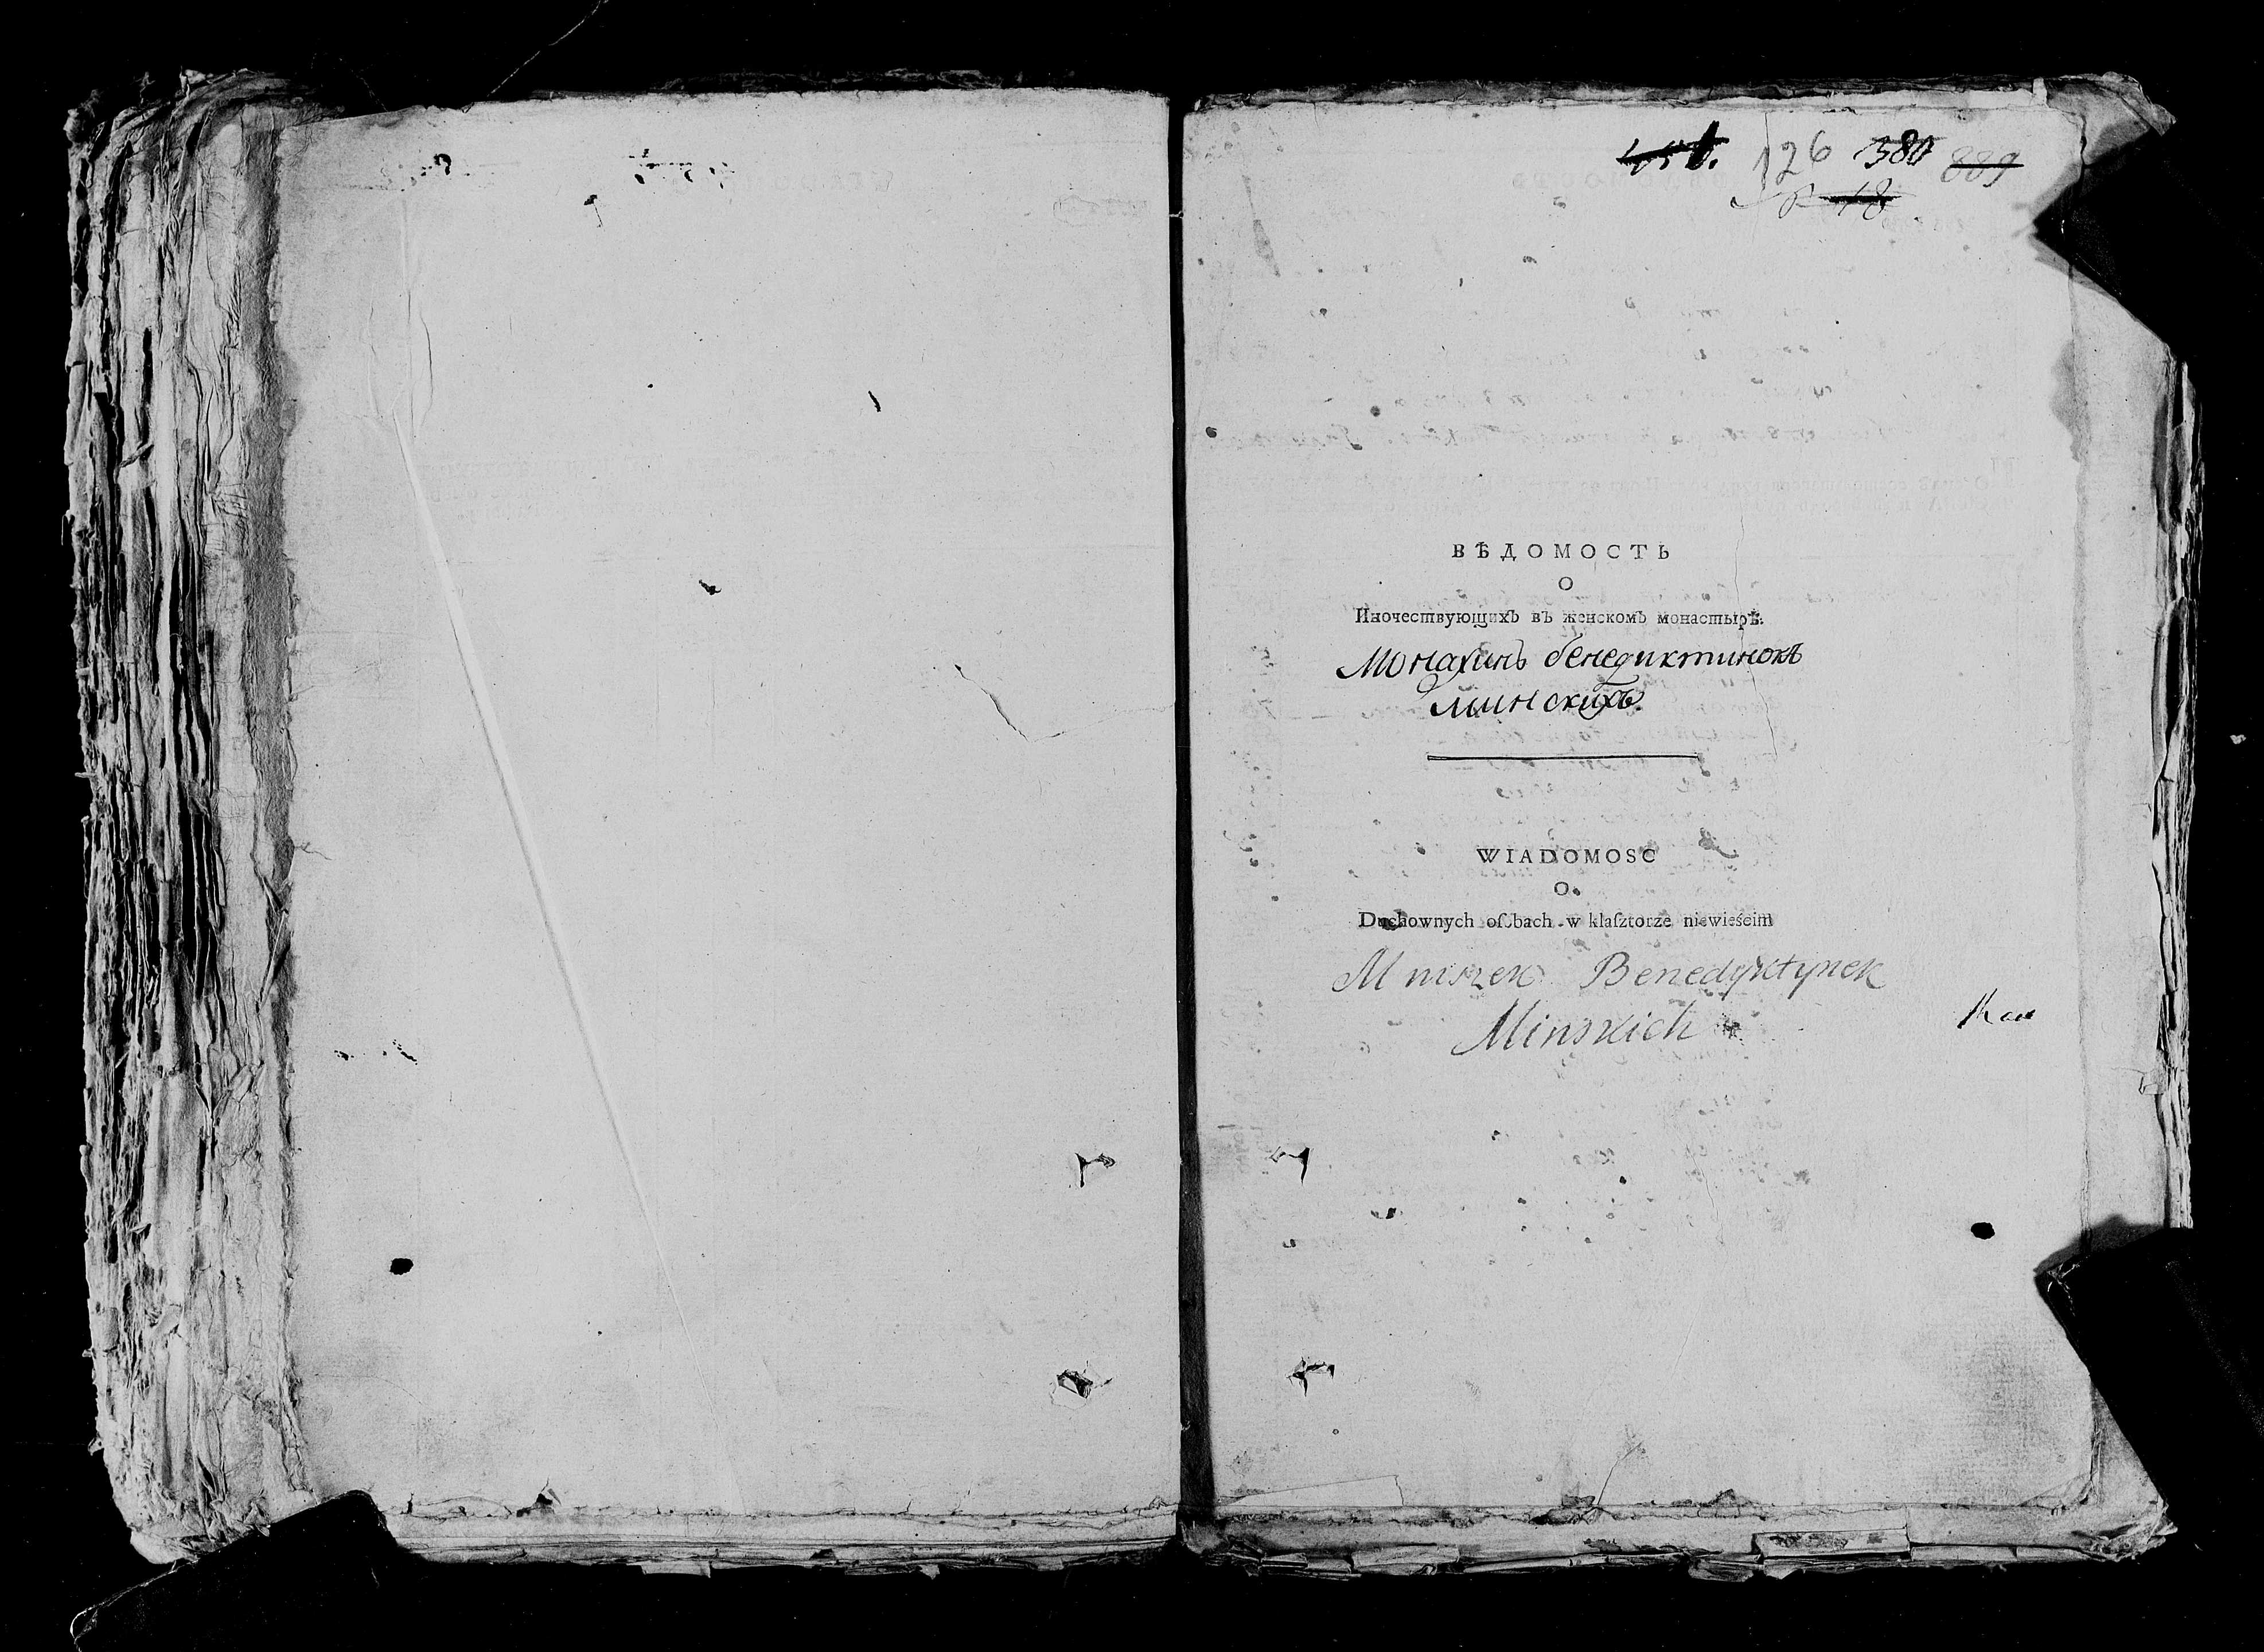 126 380 889
ВѢДОМОСТЬ
О
Иночествующихъ въ женскомъ монастырѣ.
Монахинь бенедиктинокъ
минскихъ.
WIADOMOSC
O
Duchownych osobach w klasztorze niewieścim
Mniszek Benedyktynek
Minskich